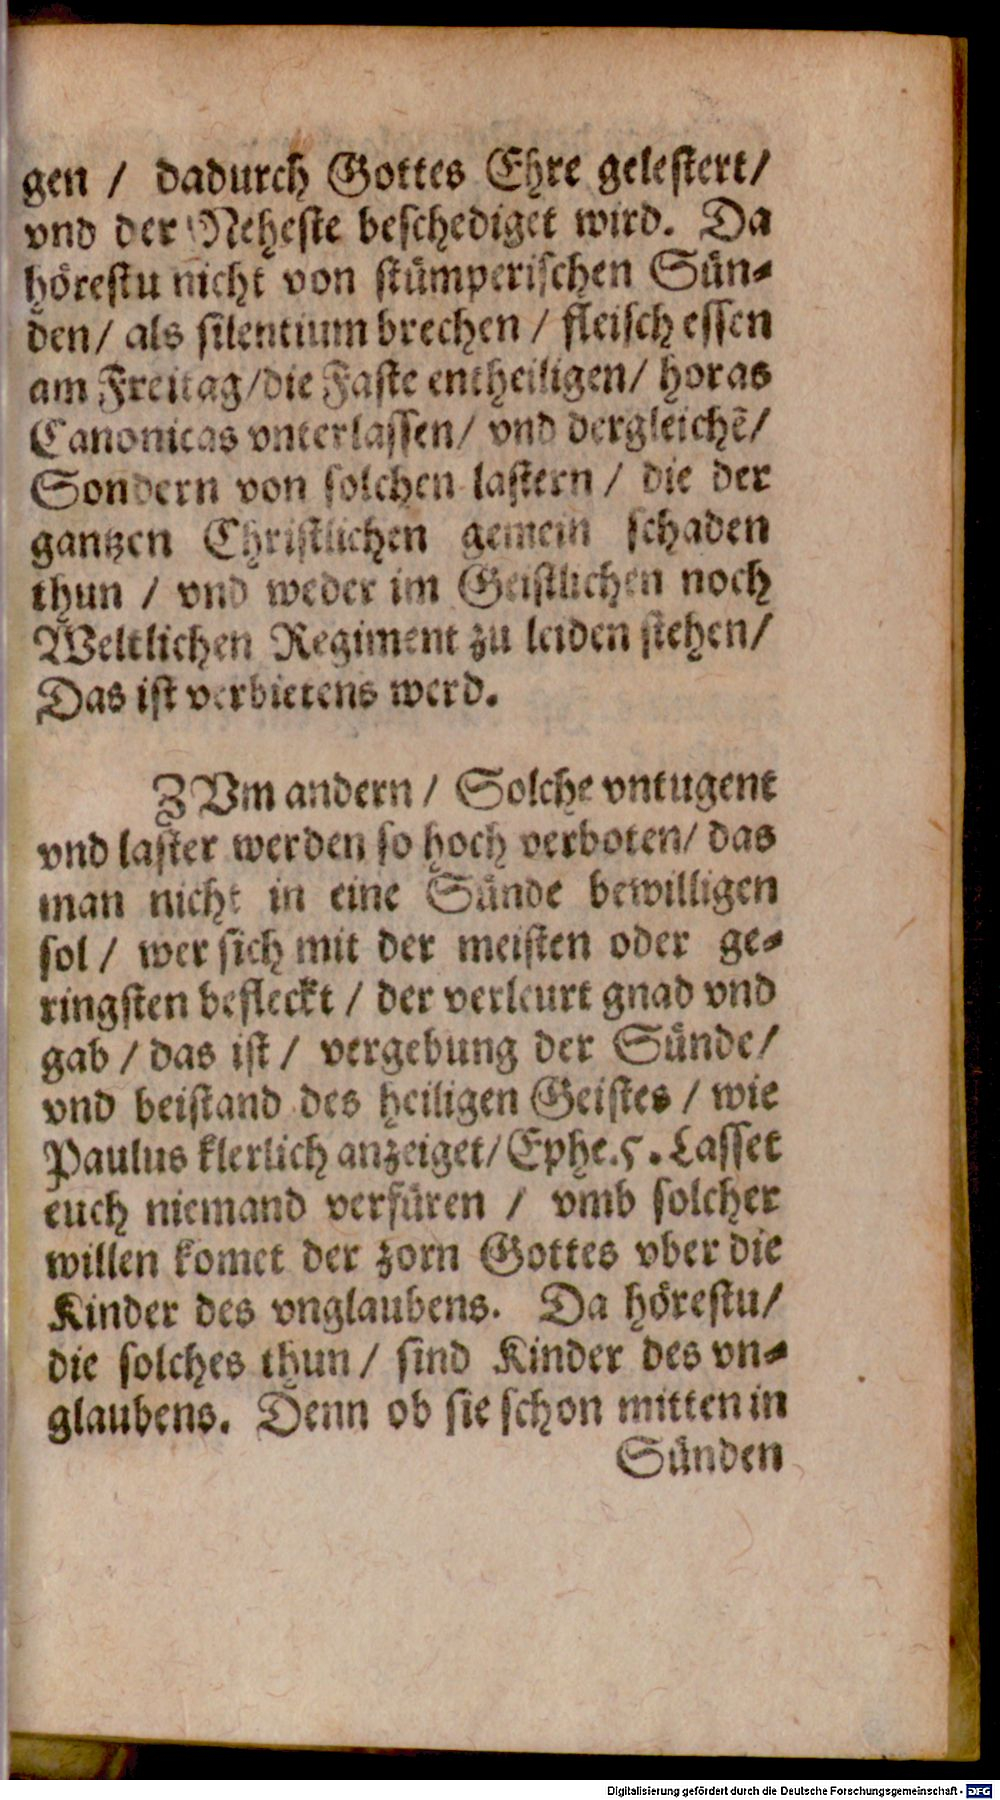 gen / dadurch Gottes Ehre gelestert/
vnd der Neheste beschediget wird. Da
hörestu nicht von stümperischen Sün-
den/ als silentium brechen / fleisch essen
am Freitag/die Faste entheiligen/ horas
Canonicas vnterlassen/ vnd dergleichẽ/
Sondern von solchen lastern / die der
gantzen Christlichen gemein schaden
thun / vnd weder im Geistlichen noch
Weltlichen Regiment zu leiden stehen/
Das ist verbietens werd.
ZVm andern / Solche vntugent
vnd laster werden so hoch verboten/ das
man nicht in eine Sünde bewilligen
sol / wer sich mit der meisten oder ge-
ringsten befleckt / der verleurt gnad vnd
gab / das ist / vergebung der Sünde/
vnd beistand des heiligen Geistes / wie
Paulus klerlich anzeiget/ Ephe.5. Lasset
euch niemand verfüren / vmb solcher
willen komet der zorn Gottes vber die
Kinder des vnglaubens. Da hörestu/
die solches thun / sind Kinder des vn-
glaubens. Denn ob sie schon mitten in
Sünden
Digitalisierung gefördert durch die Deutsche Forschungsgemeinschaft - DFG